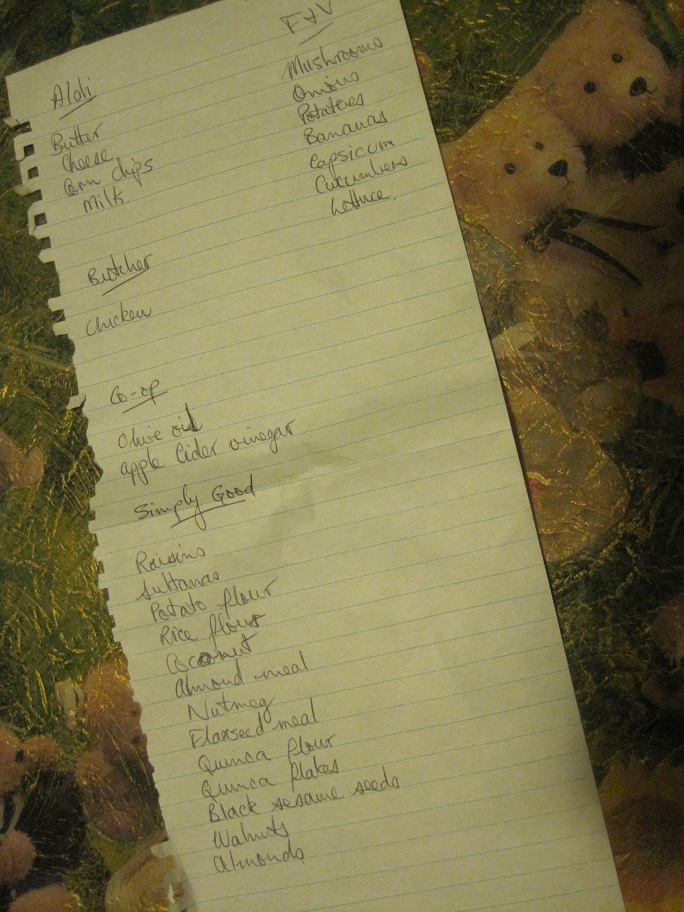 Aldi
Butter
Cheese
Corn chips
Milk.
F+V
Mushrooms
Onions
Potatoes
Bananas
Capsicum
Cucumbers
Lettuce.
Butcher
Chicken
Co-op
Olive oil
Apple Cider vinegar
Simply Good
Raisins
Sultanas
Potato flour
Rice flour
Coconut
Almond meal
Nutmeg
Flaxseed meal
Quinoa flour
Quinoa flakes
Black sesame seeds
Walnuts
Almonds